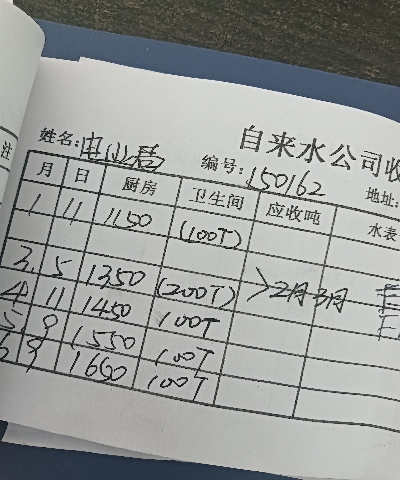 注
自来水公司收
姓名: 编号: 150162 地址:
月 日 厨房 卫生间 应收吨 水表
1 11 1150 (100T)
3. 5 1350 (200T) >2月3月
4 11 1450 100T
5. 9 1550 100T
6 9 1650 100T